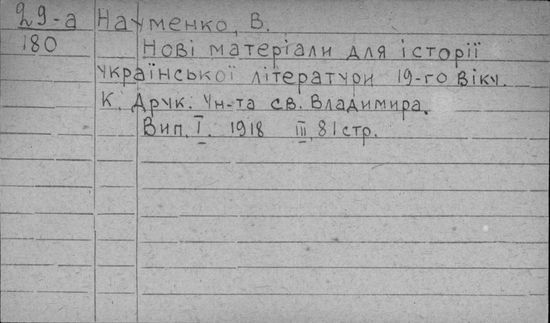 29-а Науменко, В.
180 Нові матеріали для історії
української літератури 19-го віку.
К. Друк. Ун-та св. Владимира.
Вип. I. 1918 III, 81 стр.